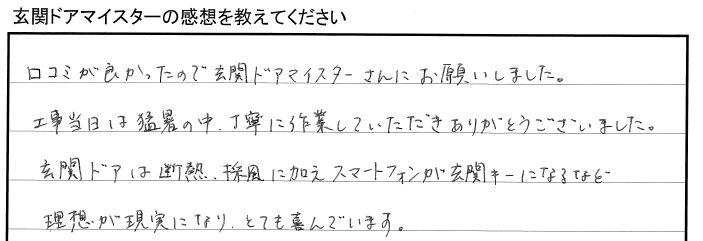 玄関ドアマイスターの感想を教えてください
口コミが良かったので玄関ドアマイスターさんにお願いしました。
工事当日は猛暑の中、丁寧に作業していただきありがとうございました。
玄関ドアは断熱、採風に加え スマートフォンが玄関キーになるなど
理想が現実になり、とても喜んでいます。